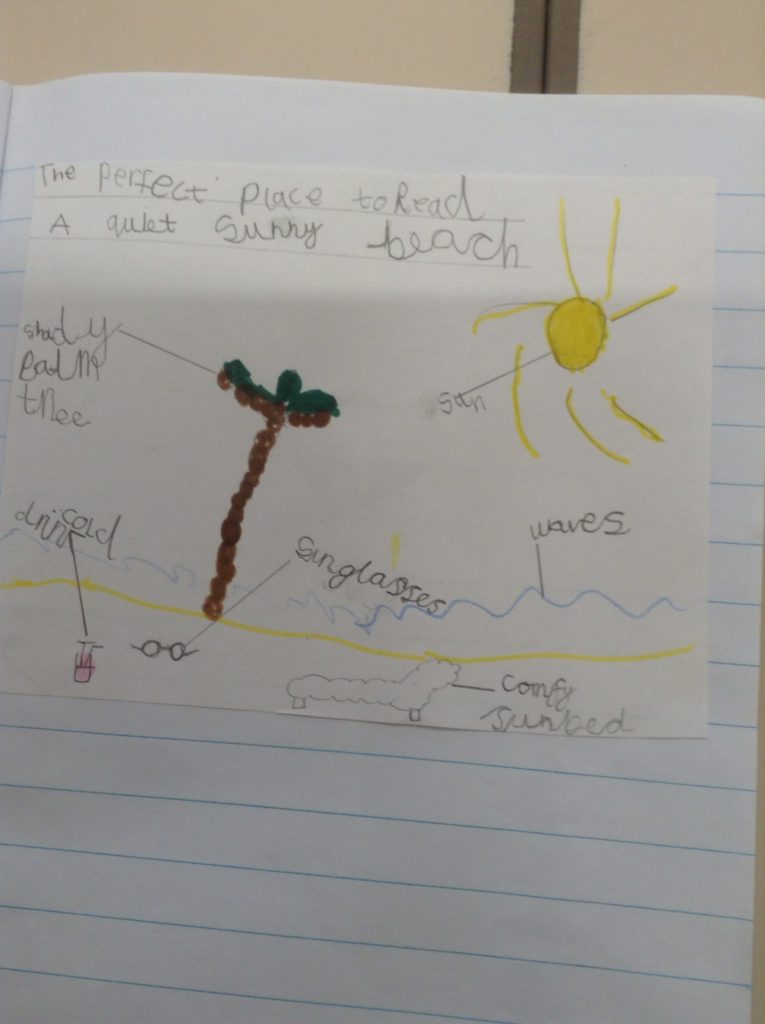 The perfect place to Read
A quiet sunny beach
shady
palm
tree
sun
cold
drink
sunglasses
waves
comfy
sunbed